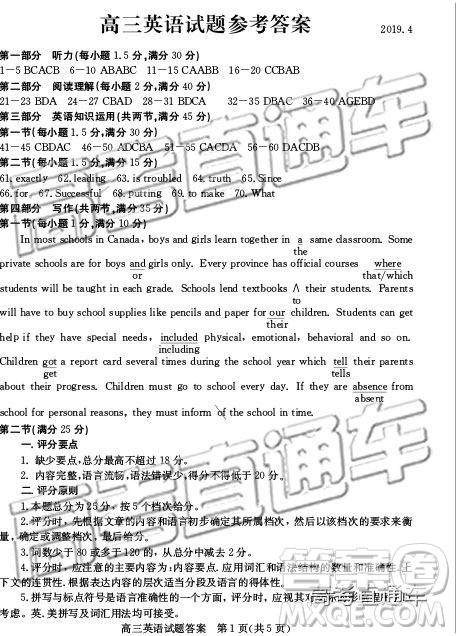 高三英语试题参考答案
2019.4
第一部分 听力(每小题1.5分,满分30分)
1-5 BCACB 6-10 ABABC 11-15 CAABB 16-20 CCBAB
第二部分 阅读理解(每小题2分,满分40分)
21-23 BDA 24-27 CBAD 28-31 BDCA 32-35 DBAC 36-40 AGEBD
第三部分 英语知识运用(共两节,满分45分)
第一节(每小题1.5分,满分30分)
41-45 CBDAC 46-50 ADCBA 51-55 CACDA 56-60 DACDB
第二节(每小题1.5分,满分15分)
61. exactly 62. leading 63. is troubled 64. truth 65. Since
66. for 67. Successful 68. putting 69. to make 70. What
第四部分 写作(共两节,满分35分)
第一节(每小题1分,满分10分)
In most schools in Canada, boys and girls learn together in a same classroom. Some
the
private schools are for boys and girls only. Every province has official courses where
or that/which
students will be taught in each grade. Schools lend textbooks ∧ their students. Parents
to
will have to buy school supplies like pencils and paper for our children. Students can get
their
help if they have special needs, included physical, emotional, behavioral and so on.
including
Children got a report card several times during the school year which tell their parents
get tells
about their progress. Children must go to school every day. If they are absence from
absent
school for personal reasons, they must inform of the school in time.
第二节(满分25分)
一. 评分要点
1. 缺少要点,总分最高不超过18分。
2. 内容完整,语言流畅,语法错误少,得分不得低于20分。
二. 评分原则
1.本题总分为25分,按5个档次给分。
2.评分时,先根据文章的内容和语言初步确定其所属档次,然后以该档次的要求来衡
量,确定或调整档次,最后给分。
3.词数少于80或多于120的,从总分中减去2分。
4.评分时,应注意的主要内容为:内容要点、应用词汇和语法结构的数量和准确性、上
下文的连贯性。根据表内容的层次适当分段及语言的得体性。
5.拼写与标点符号是语言准确性的一个方面,评分时,应视其对
考虑。英、美拼写及词汇用法均可接受。
高三英语试题答案 第1页(共5页)
高考直通车